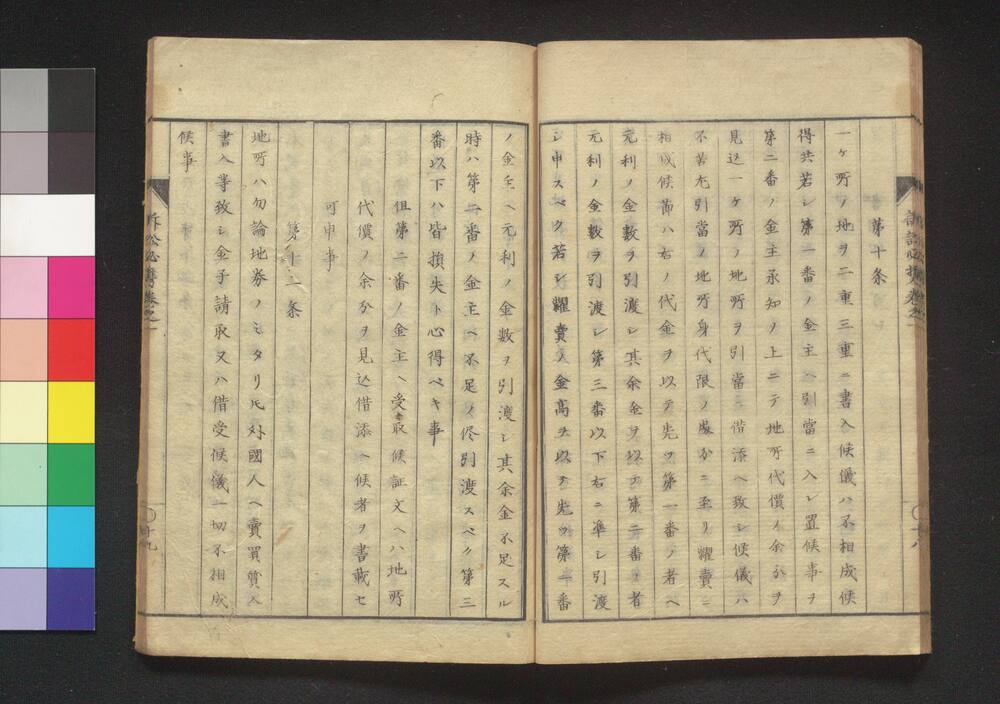 第十条
一ヶ所ノ地ヲ二重三重ニ書入候儀ハ不相成候
得共若シ第一番ノ金主ヘ引當ニ入レ置候事ヲ
第二番ノ金主承知ノ上ニテ地所代價ノ余分ヲ
見込一ヶ所ノ地所ヲ引當ニ借添ヘ致シ候儀ハ
不苦尤引當ノ地所身代限ノ處分ニ至リ糶賣ニ
相成候節ハ右ノ代金ヲ以テ先ツ第一番ノ者ヘ
元利ノ金數ヲ引渡シ其余金ヲ以テ第二番ノ者
元利ノ金數ヲ引渡シ第三番以下右ニ準シ引渡
シ申スベク若シ糶賣ノ金高ヲ以テ先ツ第一番
訴訟必携巻之一
十八
ノ金主ヘ元利ノ金數ヲ引渡シ其余金不足スル
時ハ第二番ノ金主ヘ不足ノ侭引渡スベク第三
番以下ハ皆損失ト心得ベキ事
但第二番ノ金主ヘ受取候証文ヘハ地所
代價ノ余分ヲ見込借添ヘ候者ヲ書載セ
可申事
第十二条
地所ハ勿論地券ノミタリ𪜈外國人ヘ賣買質入
書入等致シ金子請取又ハ借受候儀一切不相成
候事
訴訟必携巻之一
十九